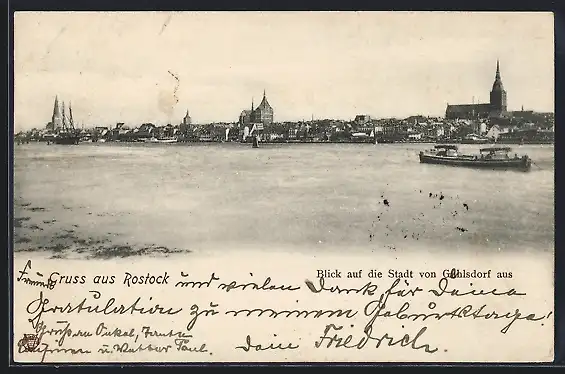 Gruss aus Rostock
Blick auf die Stadt von Gehlsdorf aus
und vielen Dank für Deine
Gratulation zu meinem Geburtstage!
Grüße an Onkel,
u. Vetter Paul.
Dein Friedrich.